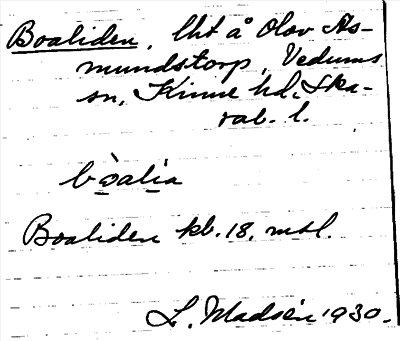 Boaliden, lht å Olov As-
mundstorp, Vedums
sn, Kinne hd, Ska-
rab. l.
bòalia
Boaliden kb. 18. mtl.
L. Madsén 1930.